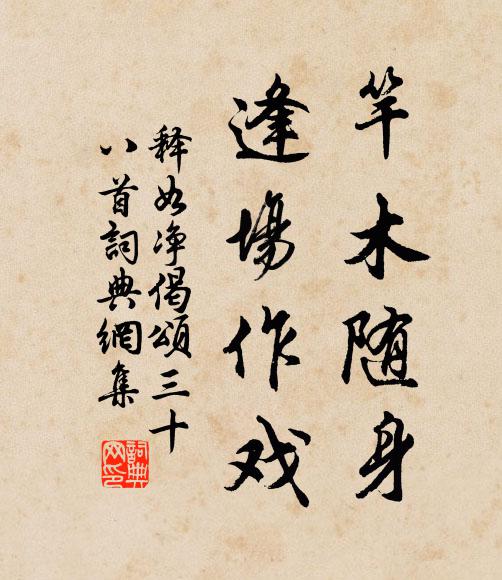 竿木随身
逢場作戏
释如净偈頌三十
八首詞典網集
詞典网印